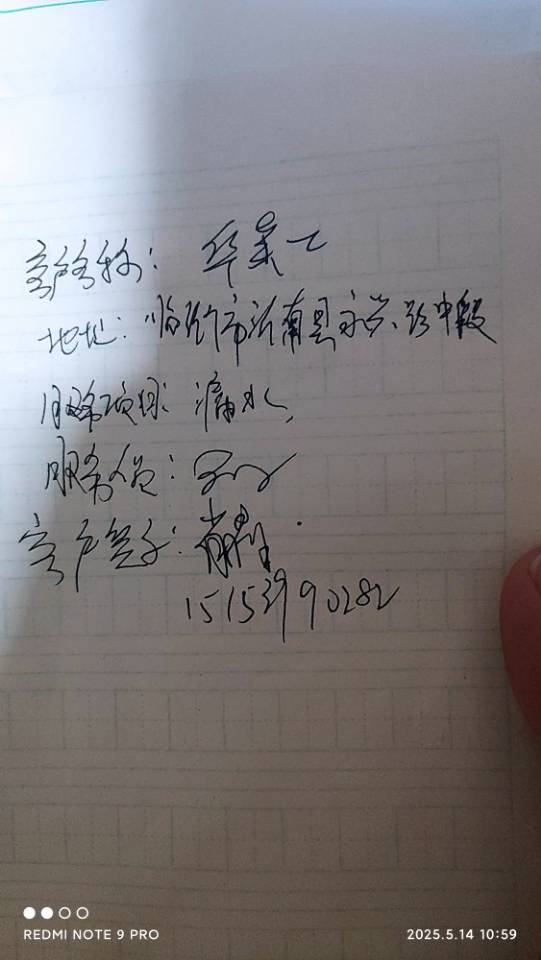 客户名称: 华美一
地址: 临沂市沂南县永兴路中段
服务项目: 漏水
服务人员:
客户签字:
15153990282
REDMI NOTE 9 PRO
2025.5.14 10:59